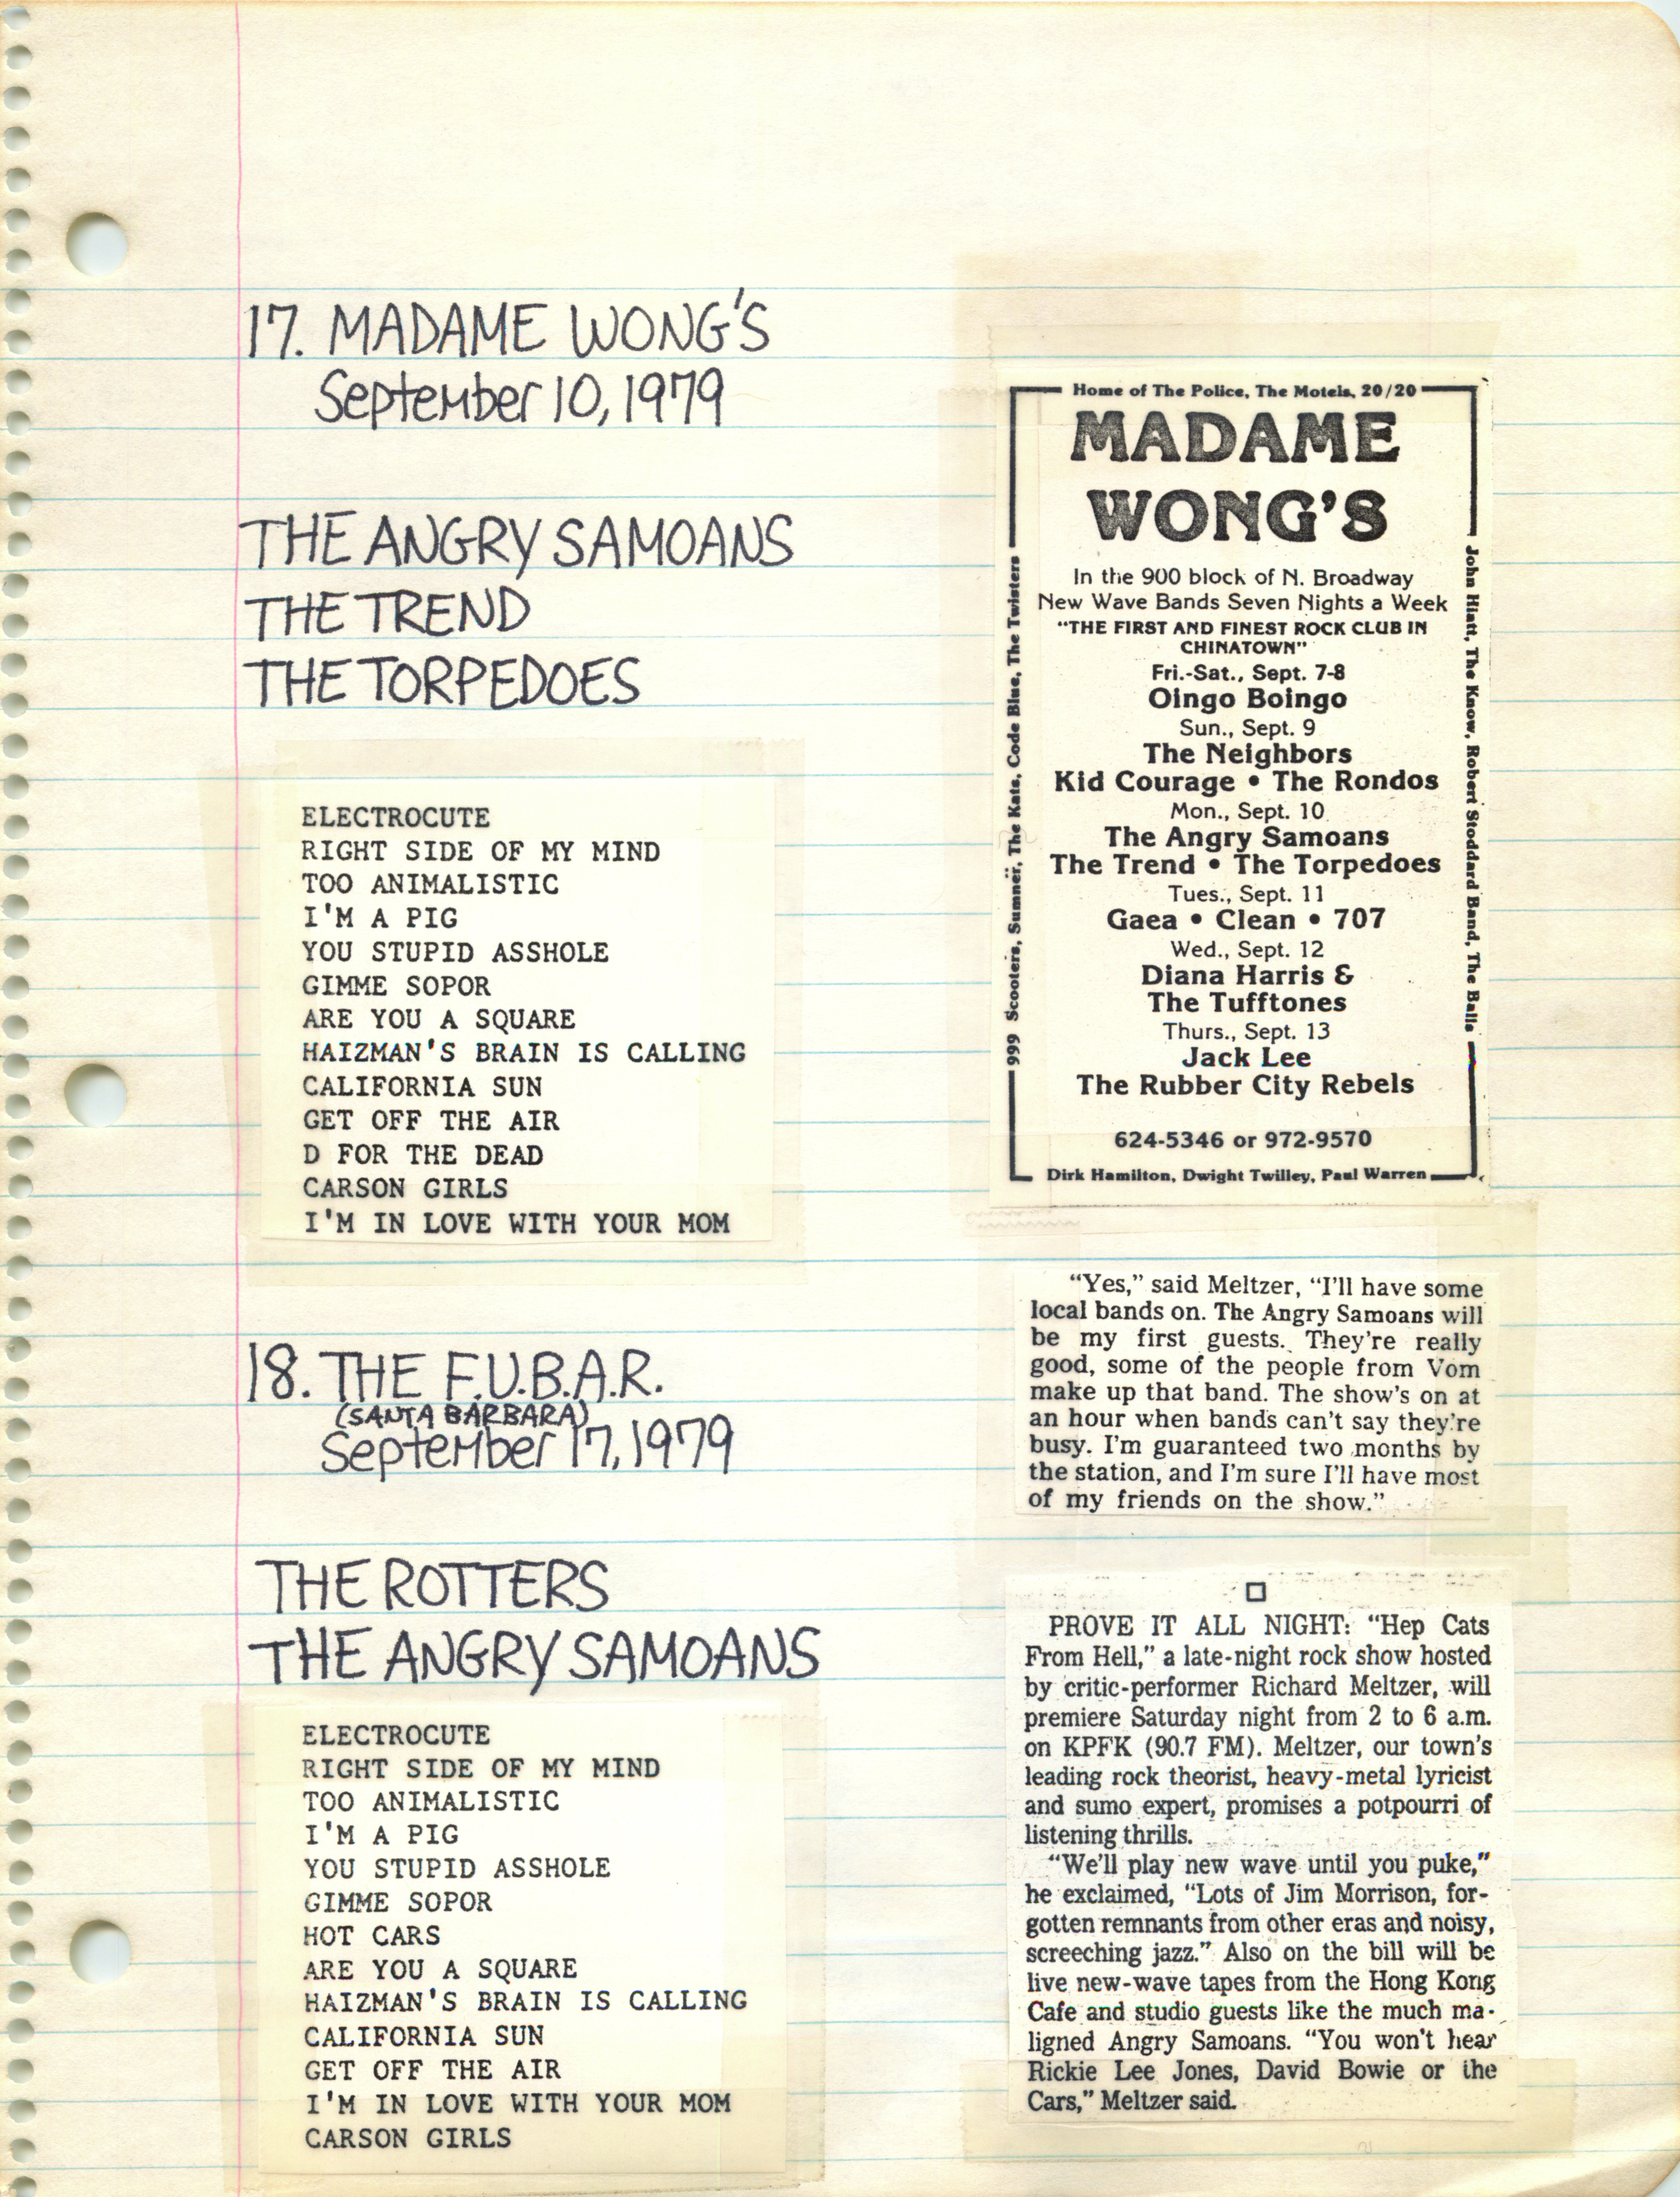 17. MADAME WONG'S
September 10, 1979
THE ANGRY SAMOANS
THE TREND
THE TORPEDOES
ELECTROCUTE
RIGHT SIDE OF MY MIND
TOO ANIMALISTIC
I'M A PIG
YOU STUPID ASSHOLE
GIMME SOPOR
ARE YOU A SQUARE
HAIZMAN'S BRAIN IS CALLING
CALIFORNIA SUN
GET OFF THE AIR
D FOR THE DEAD
CARSON GIRLS
I'M IN LOVE WITH YOUR MOM
18. THE F.U.B.A.R.
(SANTA BARBARA)
September 17, 1979
THE ROTTERS
THE ANGRY SAMOANS
ELECTROCUTE
RIGHT SIDE OF MY MIND
TOO ANIMALISTIC
I'M A PIG
YOU STUPID ASSHOLE
GIMME SOPOR
HOT CARS
ARE YOU A SQUARE
HAIZMAN'S BRAIN IS CALLING
CALIFORNIA SUN
GET OFF THE AIR
I'M IN LOVE WITH YOUR MOM
CARSON GIRLS
Home of The Police, The Motels, 20/20
MADAME
WONG'S
In the 900 block of N. Broadway
New Wave Bands Seven Nights a Week
"THE FIRST AND FINEST ROCK CLUB IN
CHINATOWN"
Fri.-Sat., Sept. 7-8
Oingo Boingo
Sun., Sept. 9
The Neighbors
Kid Courage • The Rondos
Mon., Sept. 10
The Angry Samoans
The Trend • The Torpedoes
Tues., Sept. 11
Gaea • Clean • 707
Wed., Sept. 12
Diana Harris &
The Tufftones
Thurs., Sept. 13
Jack Lee
The Rubber City Rebels
624-5346 or 972-9570
Dirk Hamilton, Dwight Twilley, Paul Warren
999 Scooters, Sumner, The Kats, Code Blue, The Twisters
John Hiatt, The Know, Robert Stoddard Band, The Balls
"Yes," said Meltzer, "I'll have some
local bands on. The Angry Samoans will
be my first guests. They're really
good, some of the people from Vom
make up that band. The show's on at
an hour when bands can't say they're
busy. I'm guaranteed two months by
the station, and I'm sure I'll have most
of my friends on the show."
PROVE IT ALL NIGHT: "Hep Cats
From Hell," a late-night rock show hosted
by critic-performer Richard Meltzer, will
premiere Saturday night from 2 to 6 a.m.
on KPFK (90.7 FM). Meltzer, our town's
leading rock theorist, heavy-metal lyricist
and sumo expert, promises a potpourri of
listening thrills.
"We'll play new wave until you puke,"
he exclaimed, "Lots of Jim Morrison, for-
gotten remnants from other eras and noisy,
screeching jazz." Also on the bill will be
live new-wave tapes from the Hong Kong
Cafe and studio guests like the much ma-
ligned Angry Samoans. "You won't hear
Rickie Lee Jones, David Bowie or the
Cars," Meltzer said.